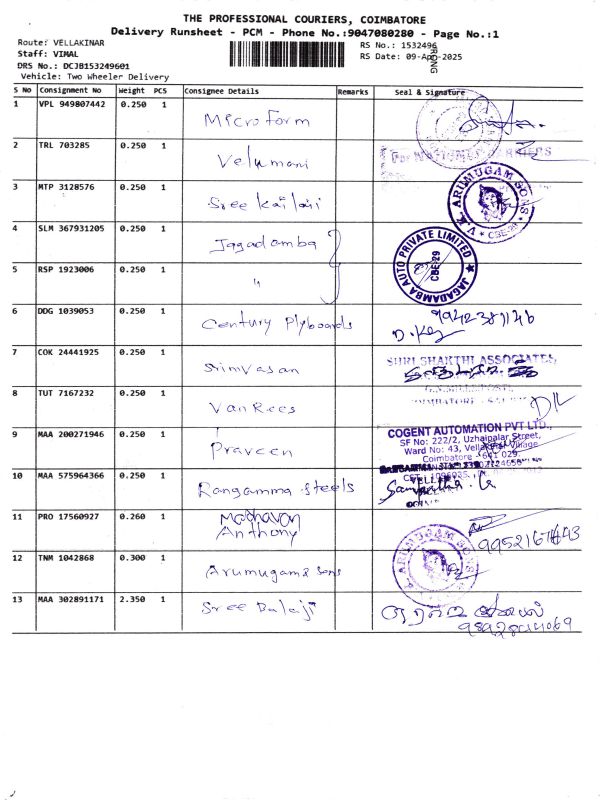 THE PROFESSIONAL COURIERS, COIMBATORE
Delivery Runsheet - PCM - Phone No.:9047080280 - Page No.:1
Route: VELLAKINAR
Staff: VIMAL
DRS No.: DCJB153249601
Vehicle: Two Wheeler Delivery
RS No.: 1532496
RS Date: 09-Apr-2025
S No Consignment No Weight PCS Consignee Details Remarks Seal & Signature
1 VPL 949807442 0.250 1 Microform
2 TRL 703285 0.250 1 Velumani For NATIONAL CARRIERS
3 MTP 3128576 0.250 1 Sree Kailani V.K. ARUMUGAM SONS * CBE-29 *
4 SLM 367931205 0.250 1 Jagadamba JAGADAMBA AUTO PRIVATE LIMITED CBE-29
5 RSP 1923006 0.250 1 "
6 DDG 1039053 0.250 1 Century Plyboards
7 COK 24441925 0.250 1 Srinivasan SHRI SHAKTHI ASSOCIATES,
8 TUT 7167232 0.250 1 Van Rees
9 MAA 200271946 0.250 1 Praveen COGENT AUTOMATION PVT LTD.,
SF No: 222/2, Uzhaipalar Street,
Ward No: 43, Vellakinar Village
Coimbatore - 641 029.
10 MAA 575964366 0.250 1 Rangamma Steels
11 PRO 17560927 0.260 1 Madhavan
Anthony
12 TNM 1042868 0.300 1 Arumugam & Sons ARUMUGAM SONS
13 MAA 302891171 2.350 1 Sree Balaji